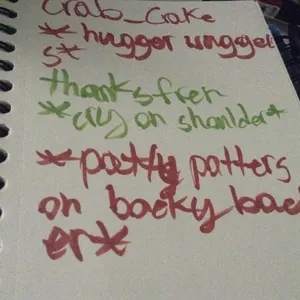 Crab_Crake
* hugger ungger
s*
thanks fren
*cry on shoulder*
*patty patters
on backy back
er*